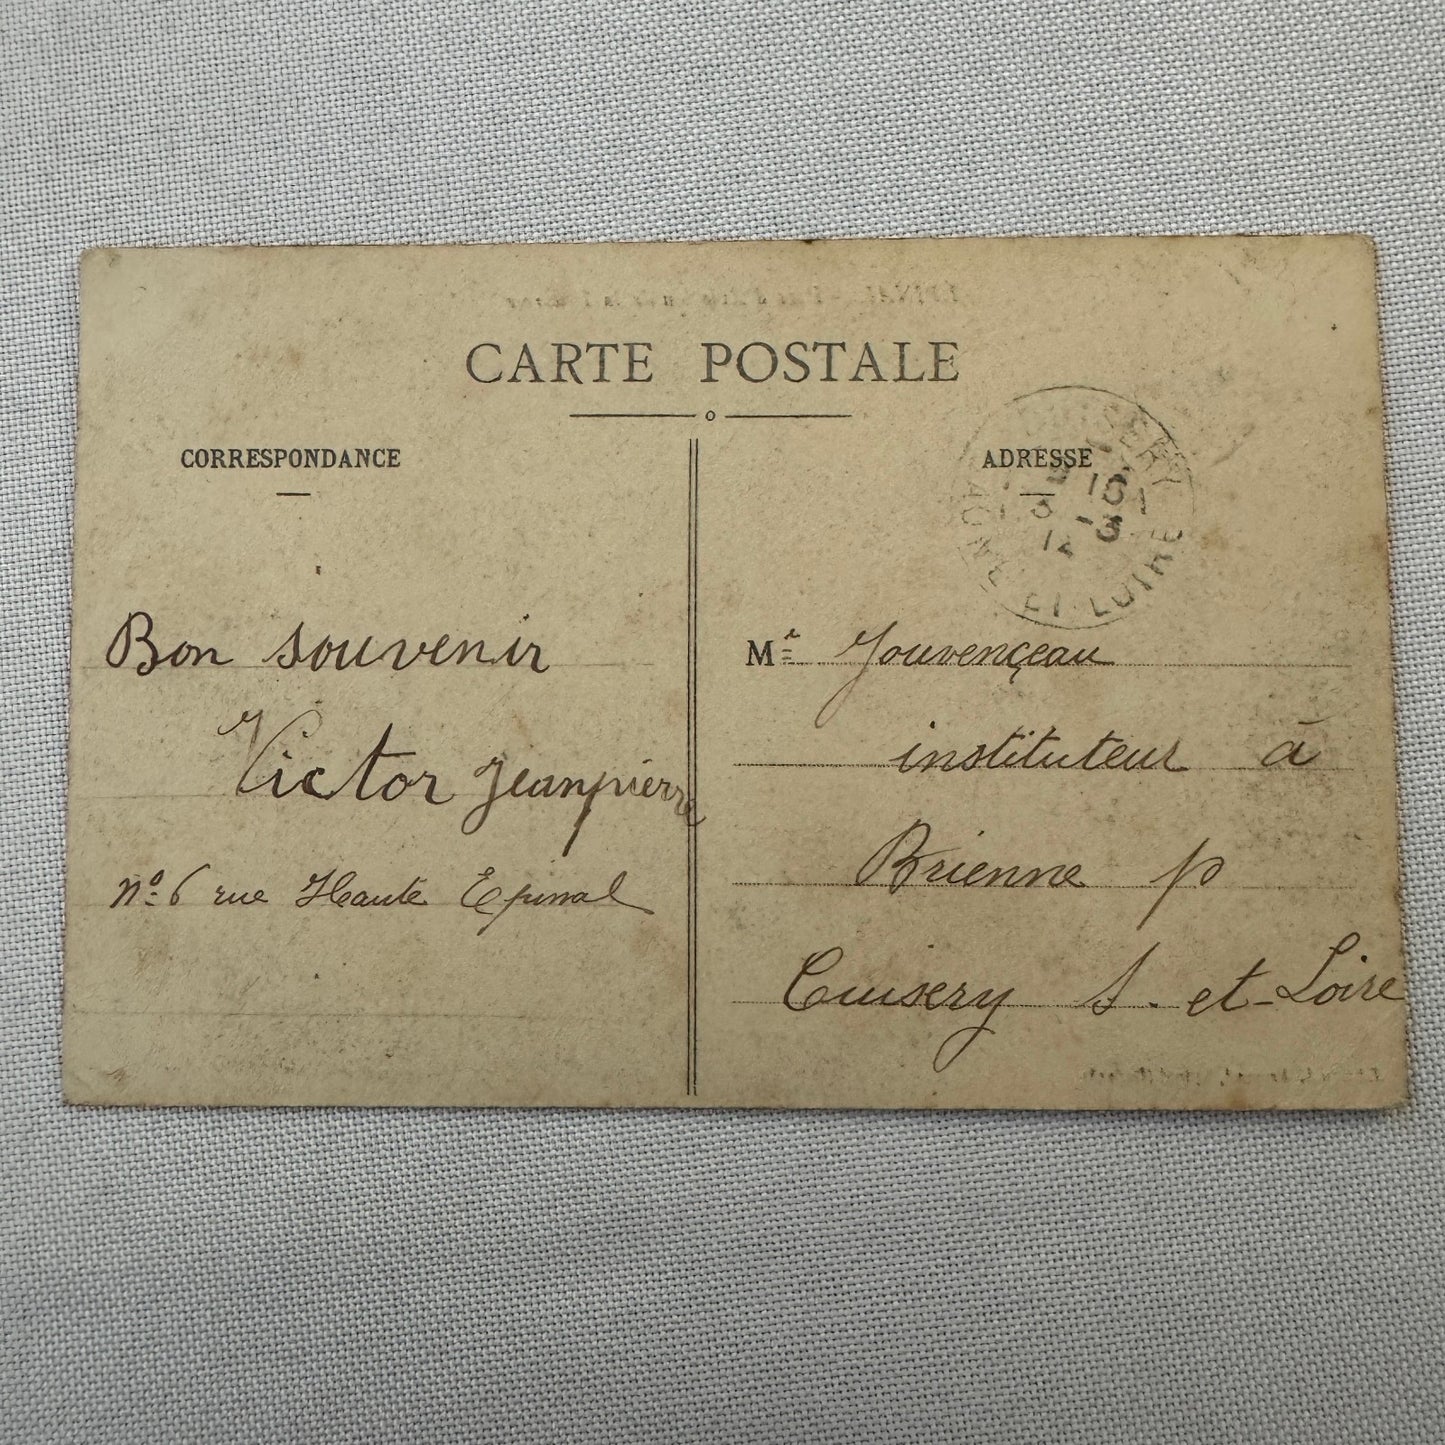 CARTE POSTALE
CORRESPONDANCE
Bon souvenir
Victor Jeanpierre
Nº 6 rue Haute Epinal
ADRESSE
Mr Jouvençeau
instituteur à
Brienne p
Cuisery S. et-Loire